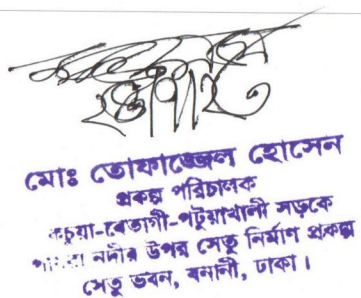 মোঃ তোফাজ্জেল হোসেন
প্রকল্প পরিচালক
কচুয়া-বেতাগী-পটুয়াখালী সড়কে
পায়রা নদীর উপর সেতু নির্মাণ প্রকল্প
সেতু ভবন, বনানী, ঢাকা।